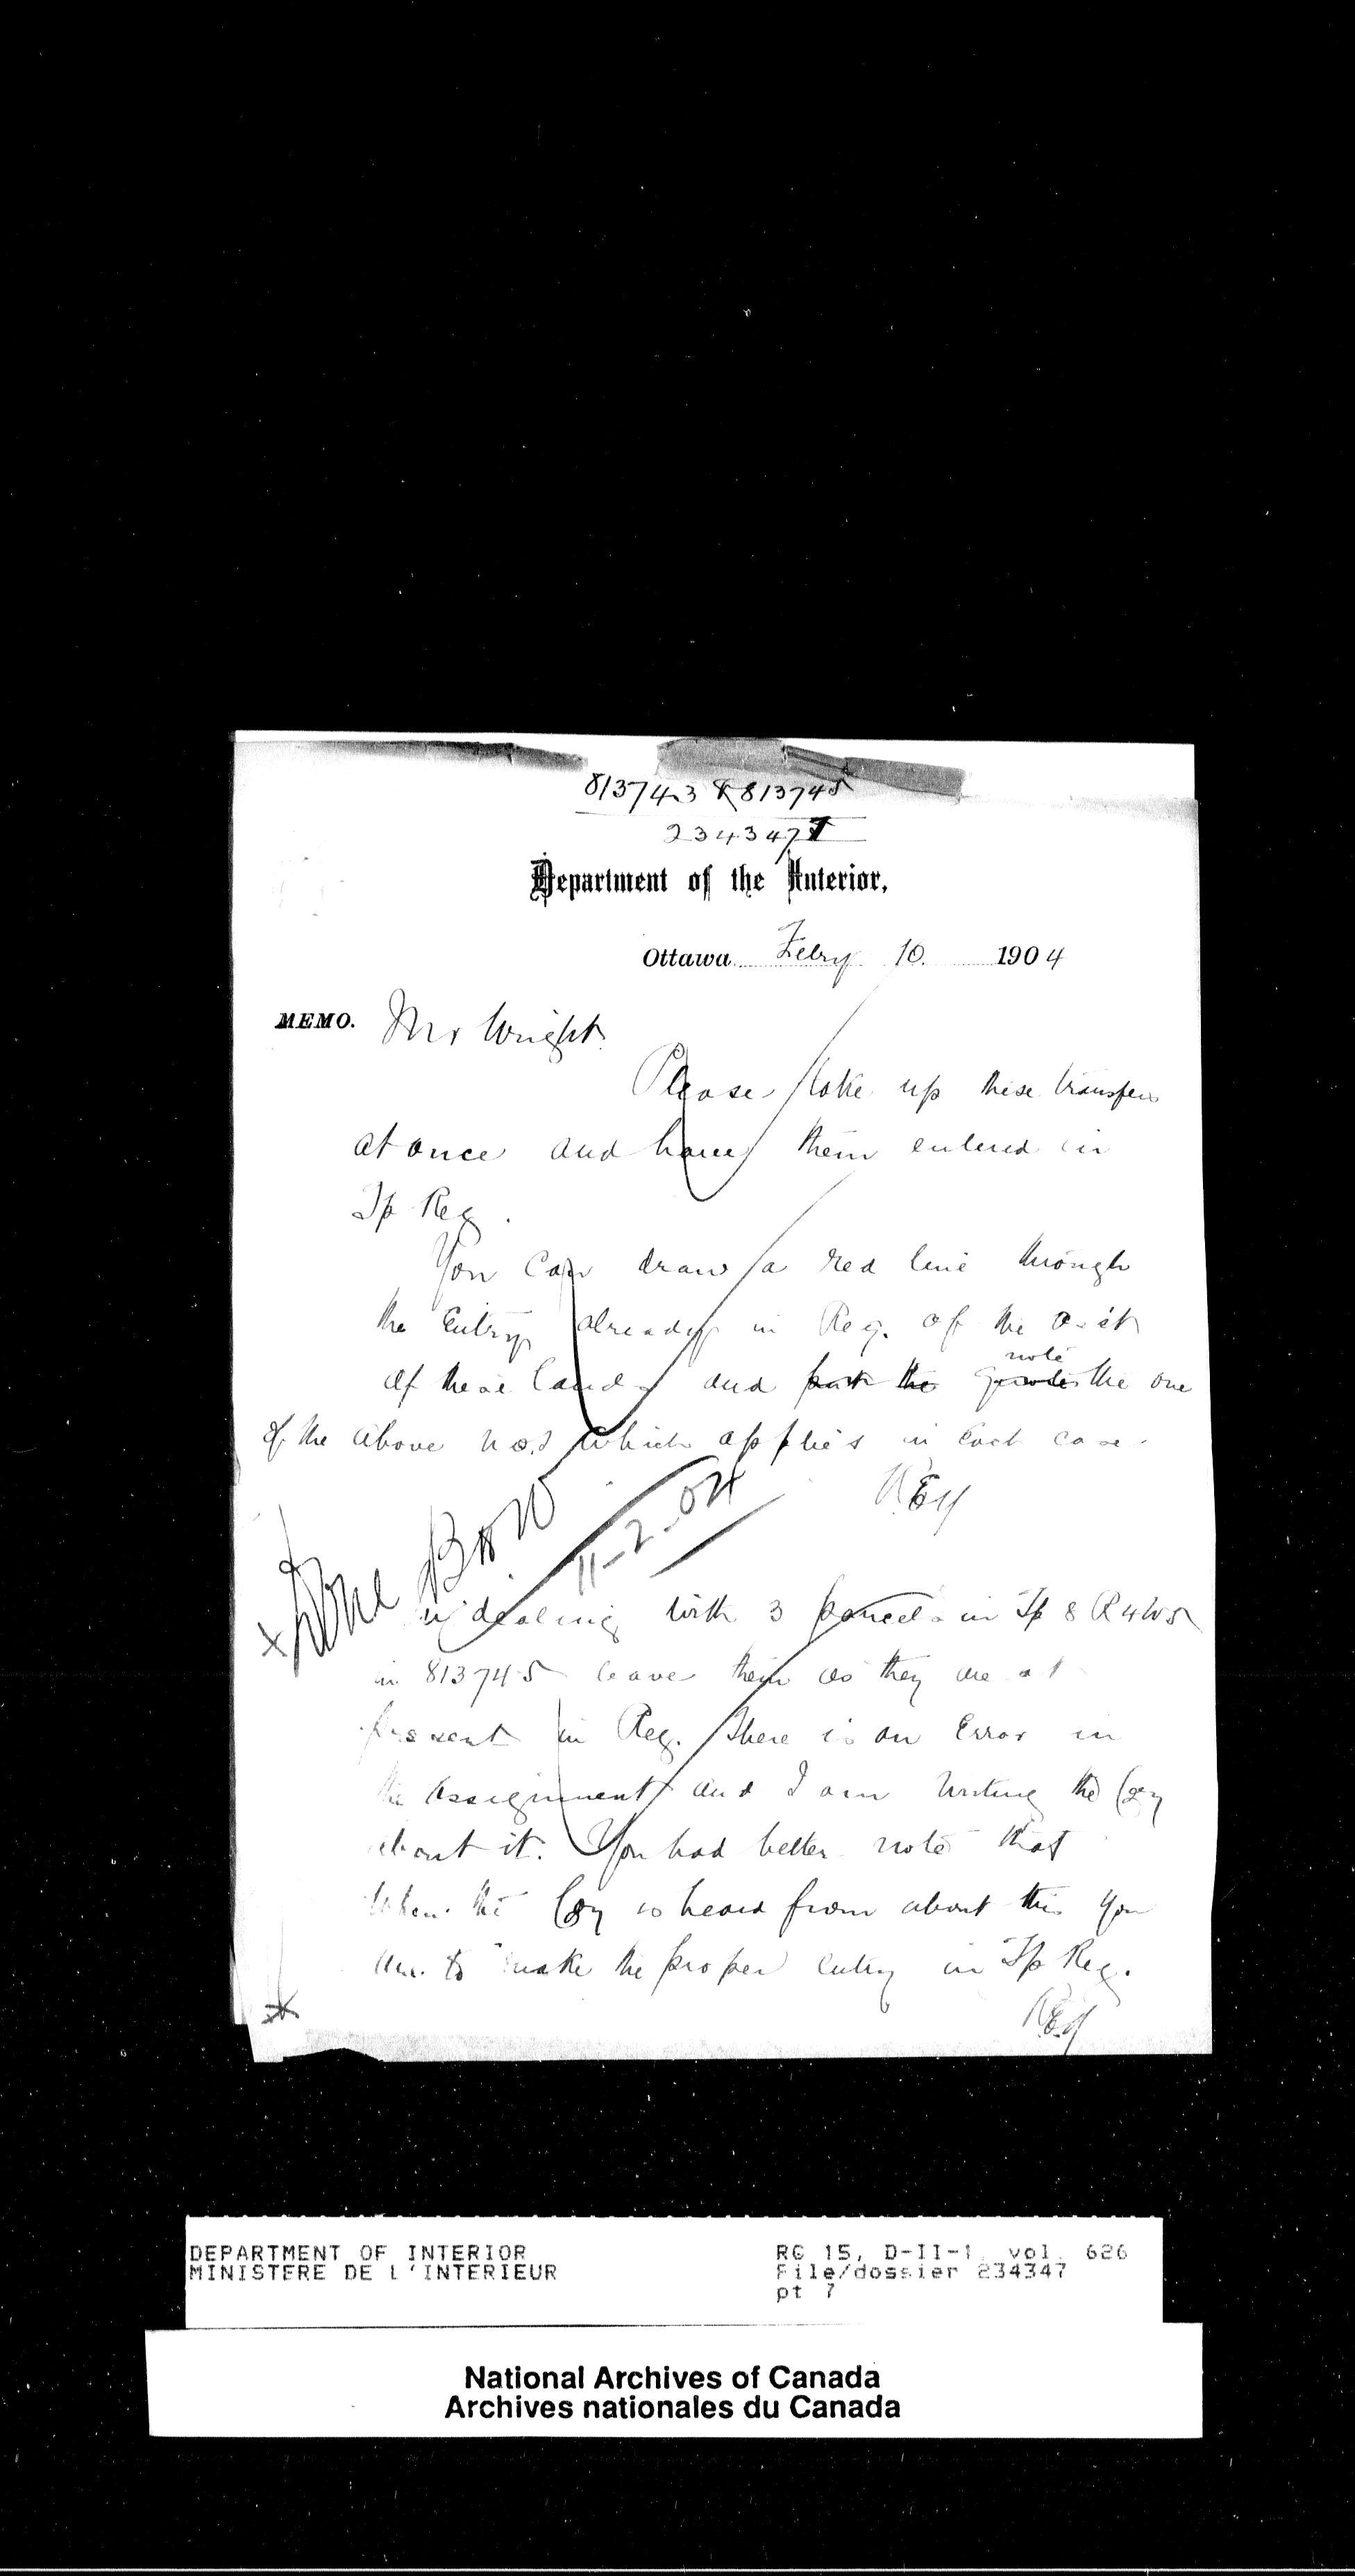 813743 & 813745
234347
Department of the Interior,
Ottawa Febry 10. 1904
MEMO. Mr Wright.
Please take up these transfers
at once and have them entered in
Tp Reg.
You can draw a red line through
the Entry already in Reg. of the
of these lands and put the note the one
of the above nos which applies in Each case.
Done
11-2-04
In dealing with 3 parcels in Tp 8 R 4 W 5
in 813745 leave them as they are at
present in Reg. There is an Error in
the assignment and I am writing the Coy
about it. You had better note that
When the Coy is heard from about this you
are to make the proper entry in Tp Reg.
DEPARTMENT OF INTERIOR
MINISTERE DE L'INTERIEUR
RG 15, D-II-1, vol. 626
File/dossier 234347
pt 7
National Archives of Canada
Archives nationales du Canada